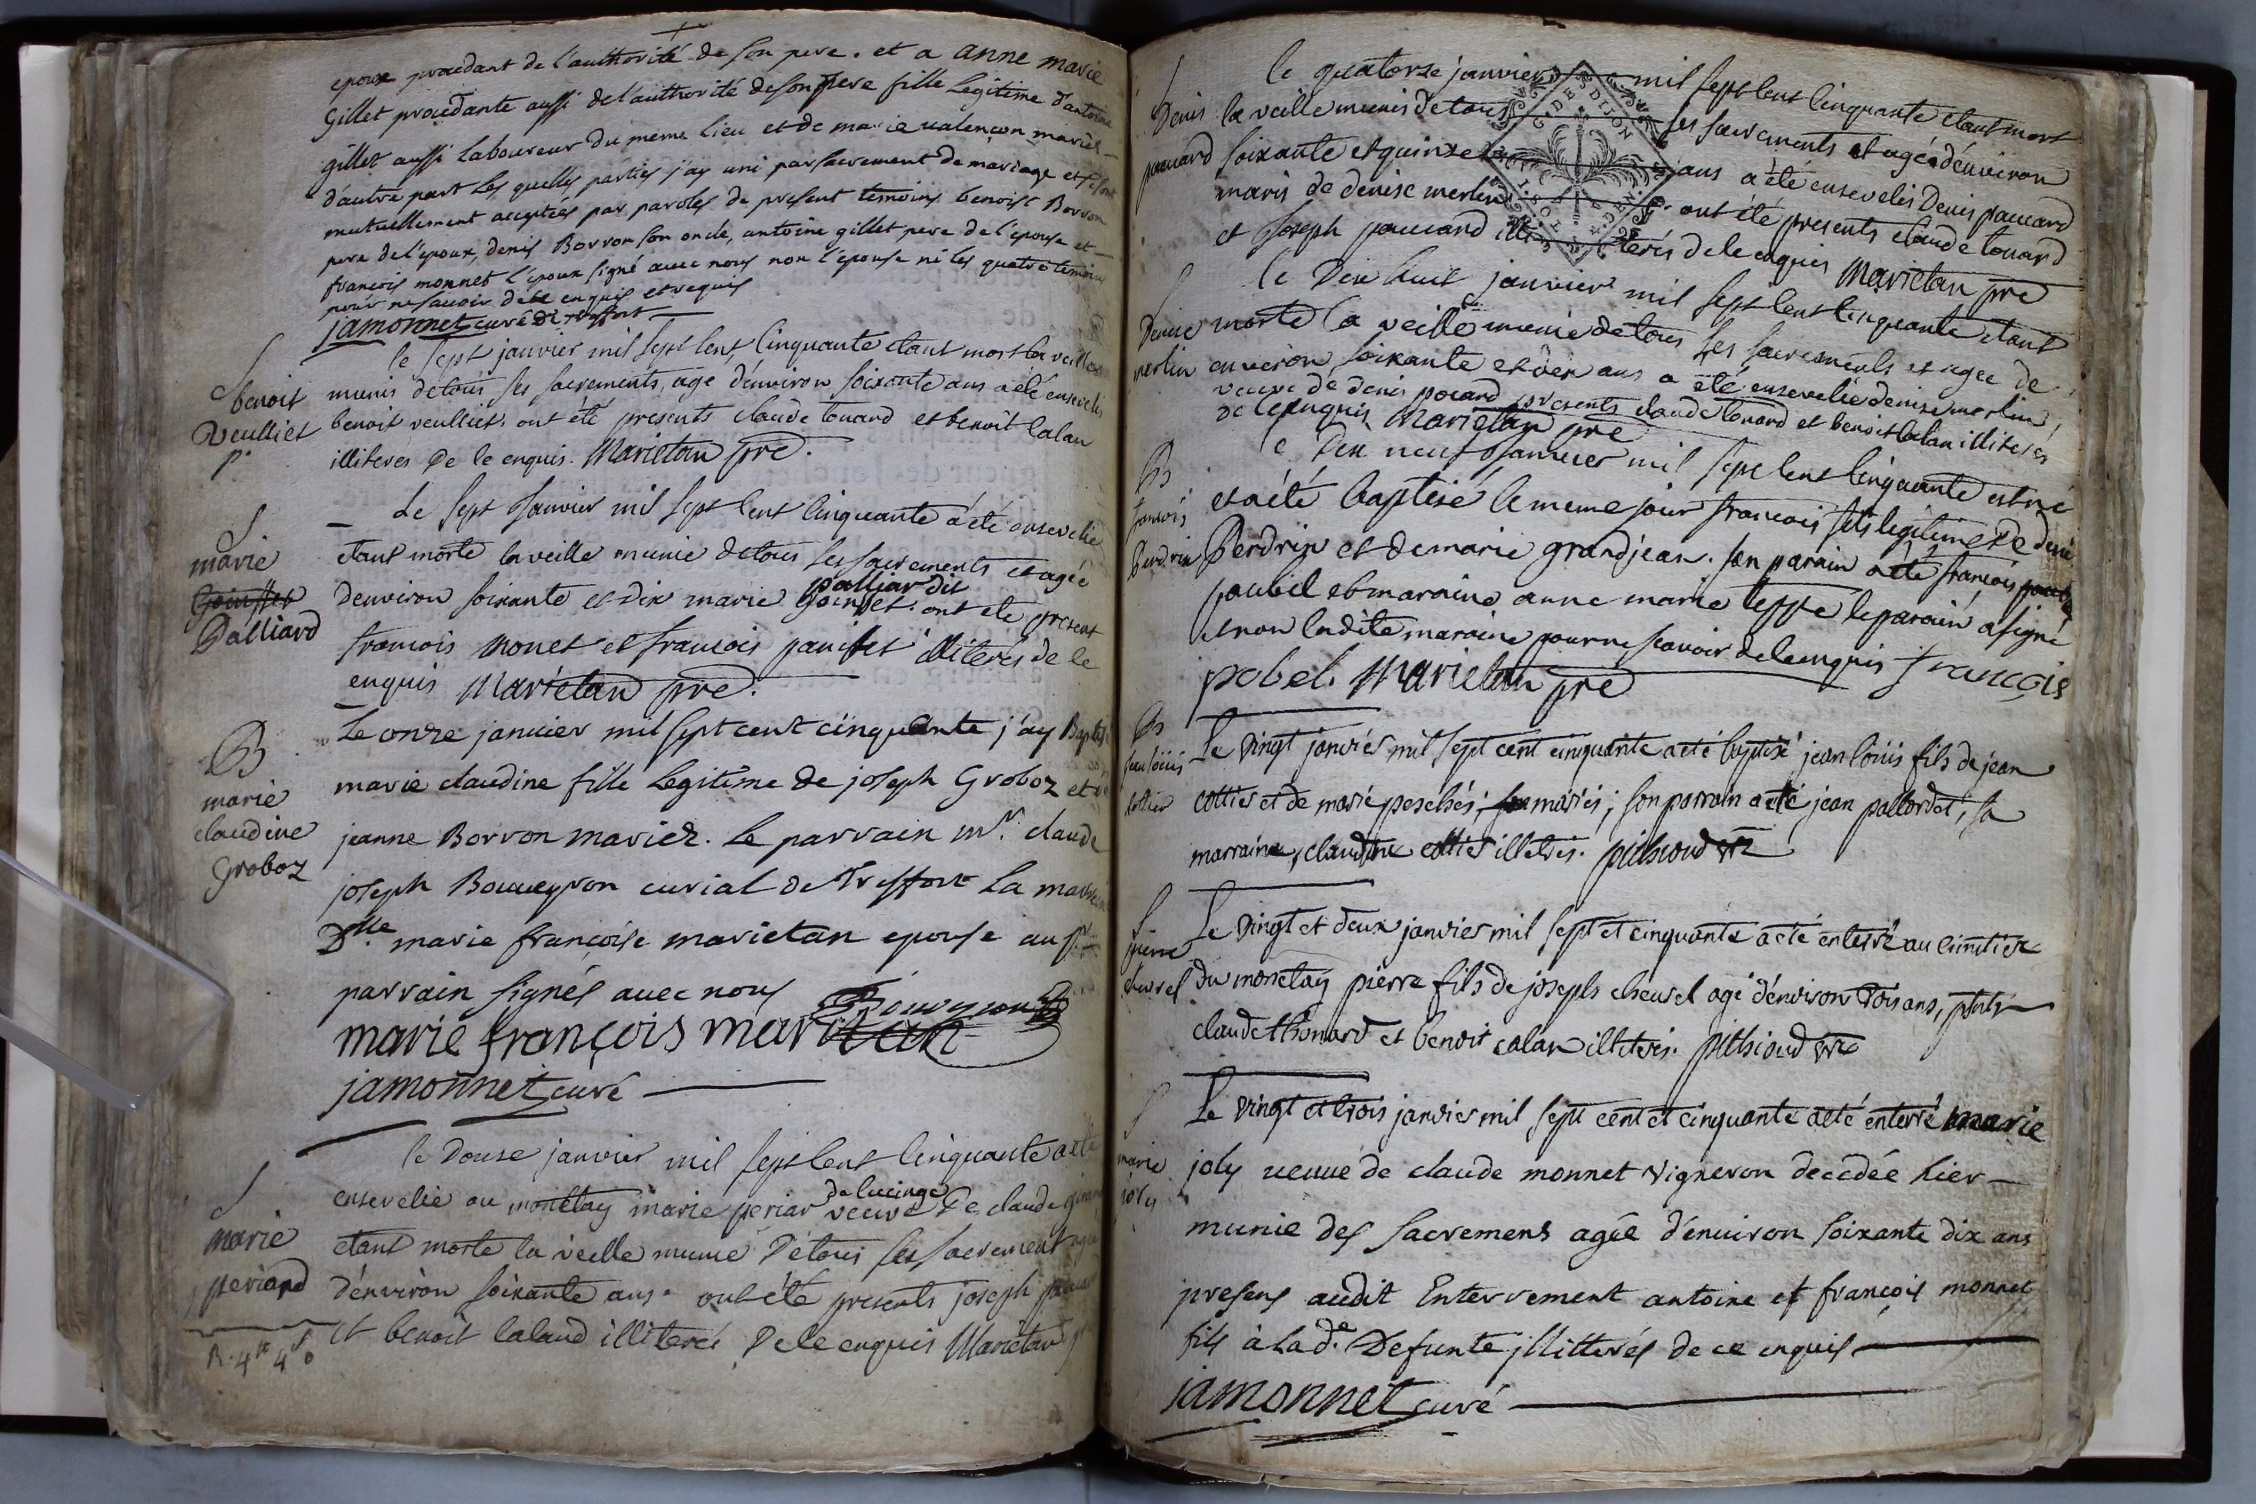 epoux procedant de l'authorité de son pere. et a anne marie
Gillet procedante aussi de l'authorité de son pere fille Legitime d'antoine
gillet aussi Laboureur du meme lieu et de marie valençon mariés
d'autre part Les quelles parties j'ay uni par sacrement de mariage et se sont
mutuellement acceptées par paroles de present temoins benoist Borron
pere de l'epoux, denis Borron son oncle, antoine gillet pere de l'epouse et
francois monnet l'epoux signé avec nous non l'epouse ni les quatre temoins
pour ne savoir de ce enquis et requis
jamonnet curé de treffort
S
benoit
veulliet
p.
le sept janvier mil sept cent cinquante etant mort la veille
munis de tous ses sacrements, age d'environ soixante ans a été enseveli
benoit veulliet. ont été presents claude touard et benoît lalan
illiterés De ce enquis. Marietan pre.
S
marie
Goinffet
Palliard
Le sept Janvier mil sept cent cinquante a été ensevelie
etant morte la veille munie de tous ses sacrements et agée
palliar dit
d'environ soixante et Dix marie Goinffet. ont ete present
francois monet et francois panisset illiterés de ce
enquis Marietan pre.
B
marie
claudine
Groboz
Le onze janvier mil sept cent cinquante j'ay Baptisé
marie claudine fille Legitime de joseph Groboz et de
jeanne Borron mariez. Le parrain mr. claude
joseph Bouveyron curial de Treffort La marraine
Dlle marie françoise marietan epouse au sr
parrain signés avec nous Bouveyron
marie françois marietan
jamonnet curé
S
marie
periard
R. 4tt 4s
le douse janvier mil sept cent cinquante a été
de lucinge
ensevelie au monetay marie periar veuve De claude
etant morte la veille munie De tous ses sacrement agée
d'environ soixante ans. ont été presents joseph
et benoît laland illiterés De ce enquis Marietan
S
Denis
paccard
le quatorze janvier mil sept cent cinquante etant mort
la veille munis de tous ses sacrements et agé d'environ
soixante et quinze ans a été enseveli Denis paccard
maris de denise merlin. ont été presents claude touard
et Joseph paccard illiterés de ce enquis Marietan pre
G. DES DIJON
S
Denise
merlin
le Dix huit janvier mil sept cent cinquante etant
morte la veille munie de tous ses sacrements et agée de
environ soixante et dix ans a été ensevelie denise merlin,
veuve de denis pocard presents claude touard et benoit lalan illiterés
de ce enquis Marietan pre
B
francois
Perdrix
le Dix neuf Janvier mil sept cent cinquante est né
et a été baptisé le meme jour francois fils legitime De denis
Perdrix et de marie grandjean. son parain a été françois
poubel et maraine anne marie teppe le parain a signé
et non ladite maraine pour ne scavoir de ce enquis françois
pobel. Marietan pre
B
jean louis
cottier
Le vingt janvier mil sept cent cinquante a eté baptisé jean louis fils de jean
cottier et de marie peschés; mariés; son parrain a eté jean pallordet, sa
marraine, claudine cottier illetrés. pithioud vre
S
pierre
chevrel
Le vingt et deux janvier mil sept et cinquante a eté enterré au cimetier
du monetay pierre fils de joseph chevrel agé d'environ trois ans, pnts
claude thomard et benoit calan illiterés. pithioud vre
S
marie
joly
Le vingt et trois janvier mil sept cent et cinquante a eté enterré marie
joly veuve de claude monnet vigneron decedée hier
munie des sacremens agée d'environ soixante dix ans
presens audit Enterrement antoine et françois monnet
fils à la de. Defunte jllitterés de ce enquis
jamonnet curé